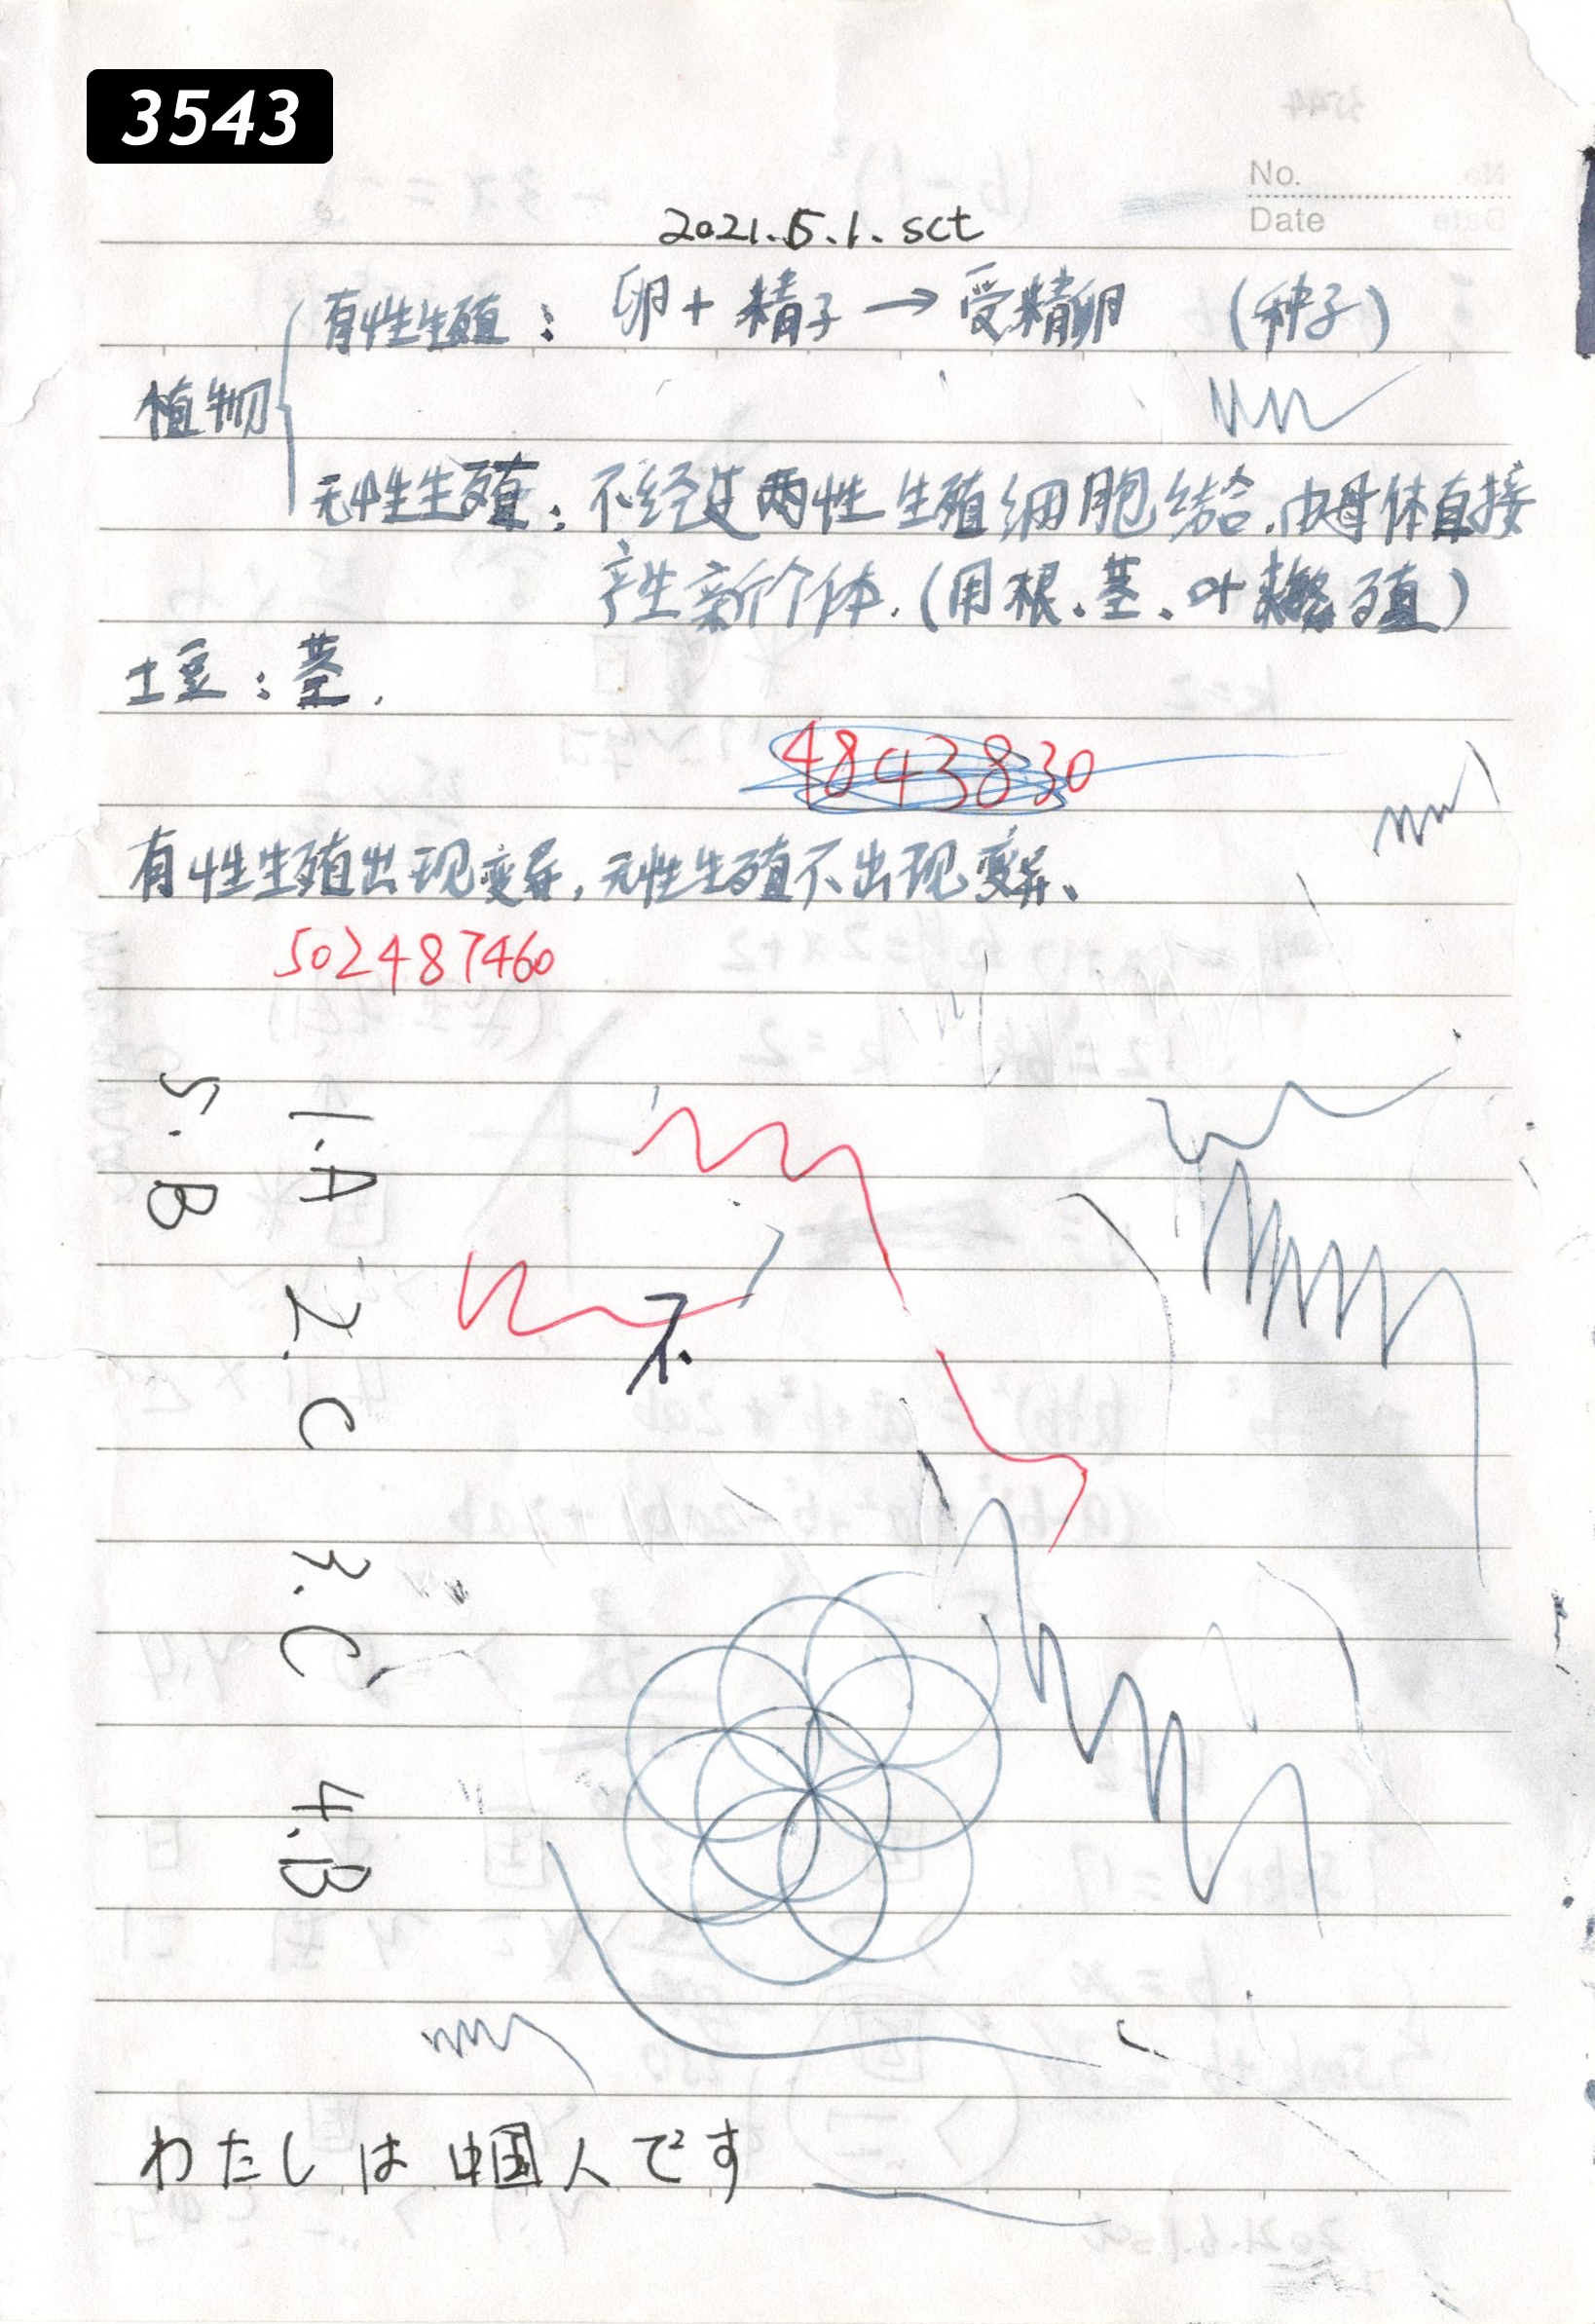 3543
No.
Date
2021.5.1. sct
植物
有性生殖：卵+精子→受精卵 (种子)
无性生殖：不经过两性生殖细胞结合,由母体直接
产生新个体.(用根、茎、叶来繁殖)
土豆：茎.
4843830
有性生殖出现变异,无性生殖不出现变异、
502487460
1.A 2.C 3.C 4.B
5.B
不
わたしは中国人です